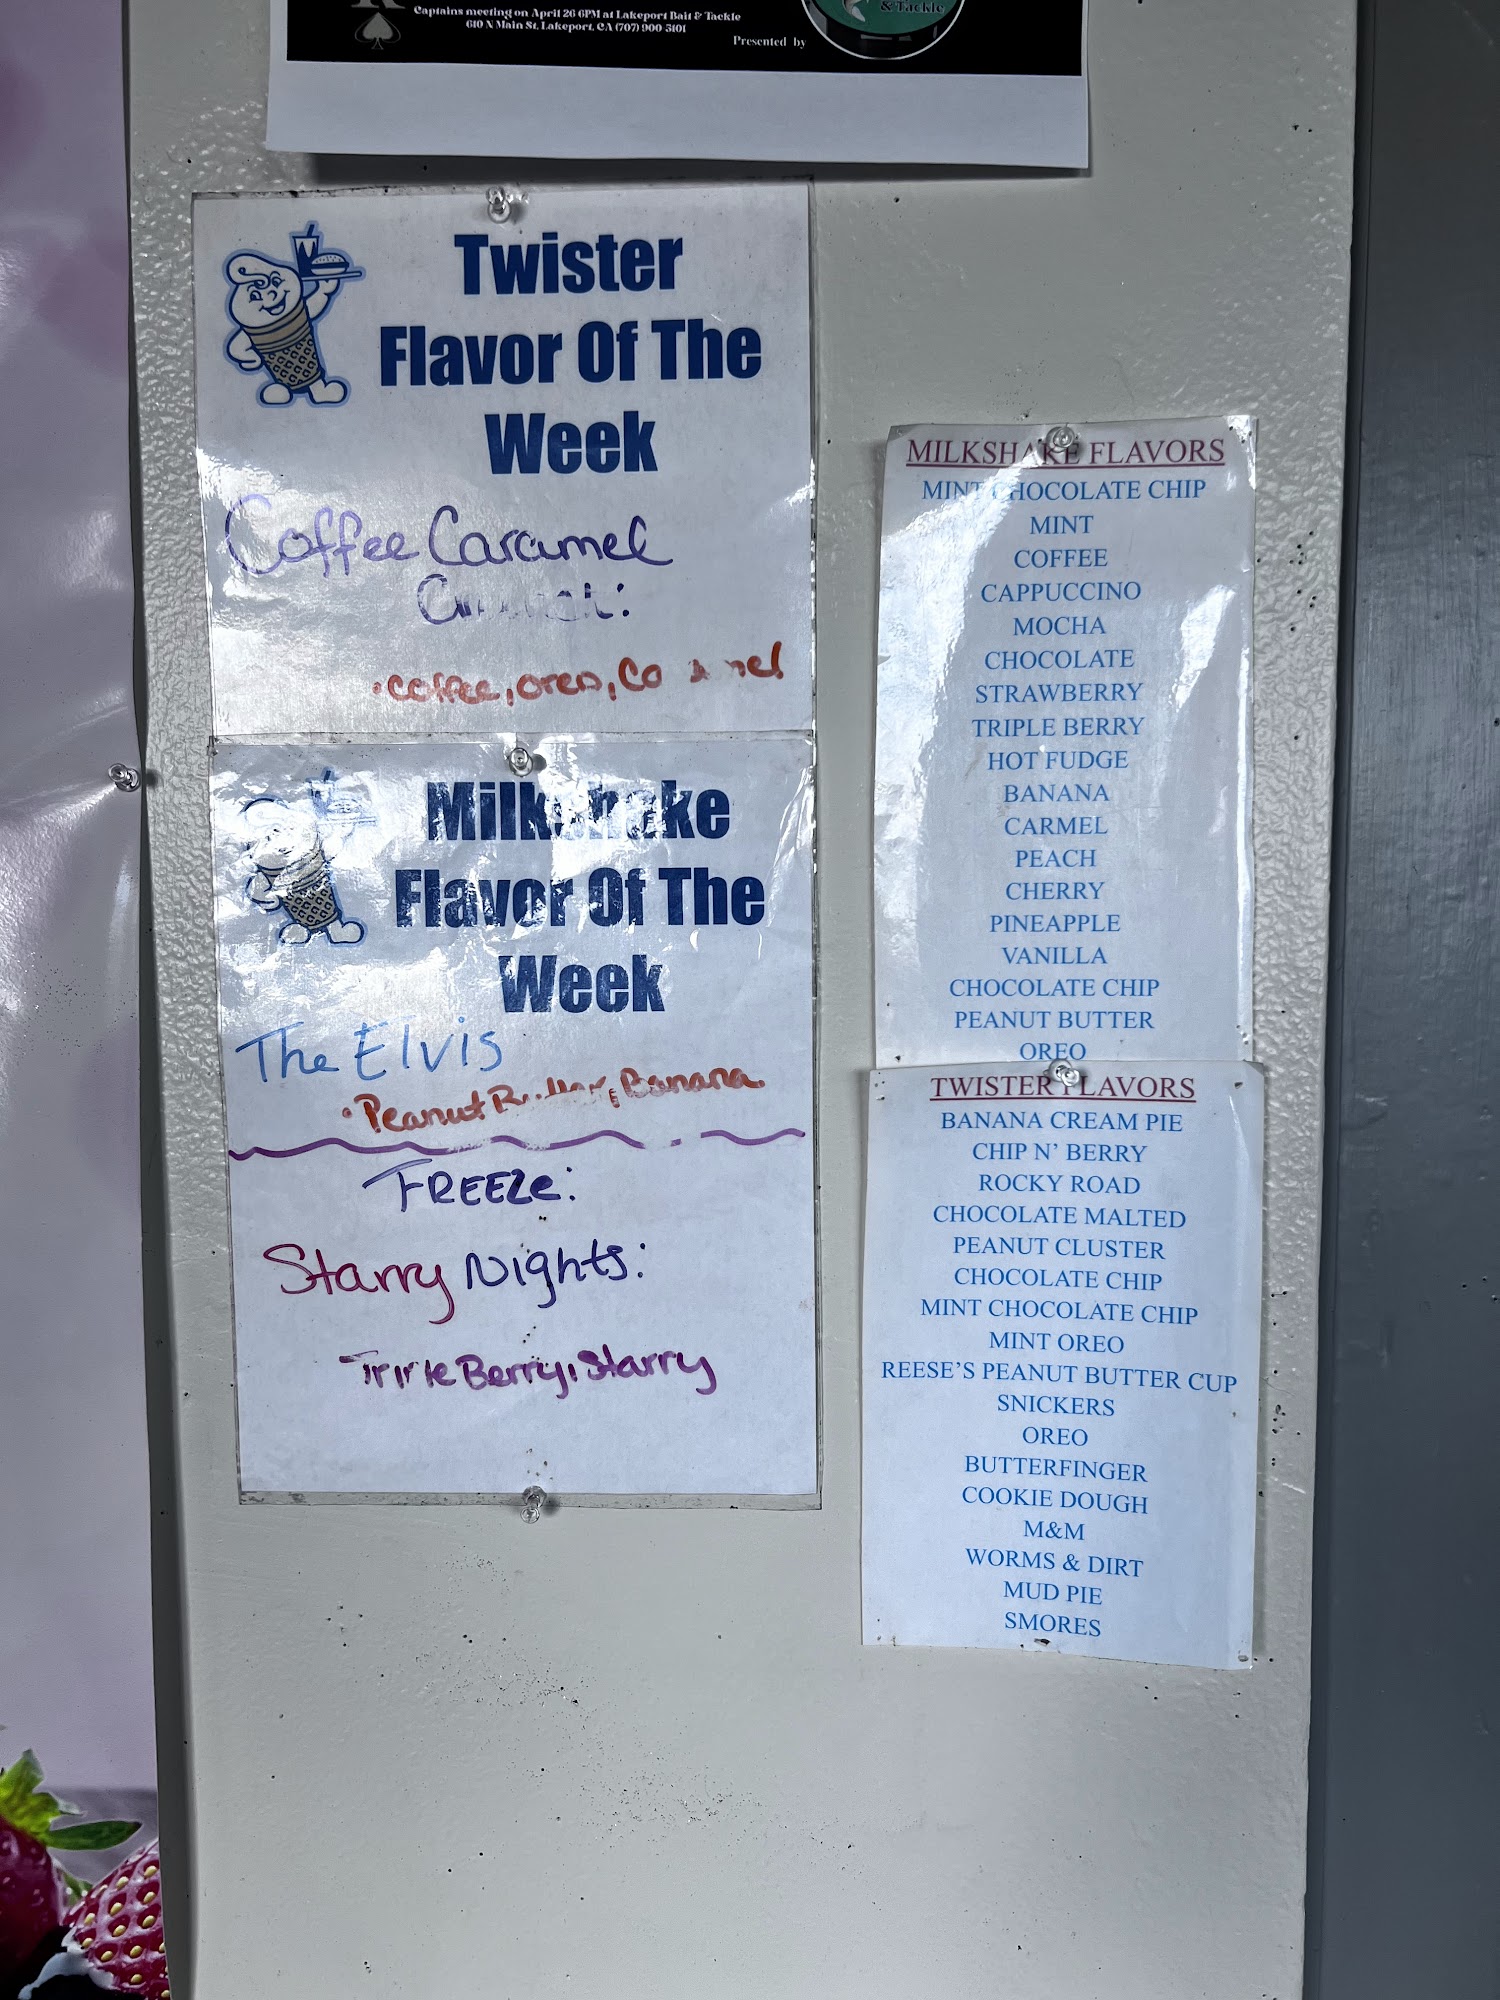 Captains meeting on April 26 6PM at Lakeport Bait & Tackle
610 N Main St, Lakeport, CA (707) 900-3101
Presented by
& Tackle
Twister
Flavor Of The
Week
Coffee Caramel
•coffee, oreo,
Milkshake
Flavor Of The
Week
The Elvis
•Peanut Butter, Banana
FREEZE:
Starry Nights:
Triple Berry, Starry
MILKSHAKE FLAVORS
MINT CHOCOLATE CHIP
MINT
COFFEE
CAPPUCCINO
MOCHA
CHOCOLATE
STRAWBERRY
TRIPLE BERRY
HOT FUDGE
BANANA
CARMEL
PEACH
CHERRY
PINEAPPLE
VANILLA
CHOCOLATE CHIP
PEANUT BUTTER
OREO
TWISTER FLAVORS
BANANA CREAM PIE
CHIP N’ BERRY
ROCKY ROAD
CHOCOLATE MALTED
PEANUT CLUSTER
CHOCOLATE CHIP
MINT CHOCOLATE CHIP
MINT OREO
REESE’S PEANUT BUTTER CUP
SNICKERS
OREO
BUTTERFINGER
COOKIE DOUGH
M&M
WORMS & DIRT
MUD PIE
SMORES